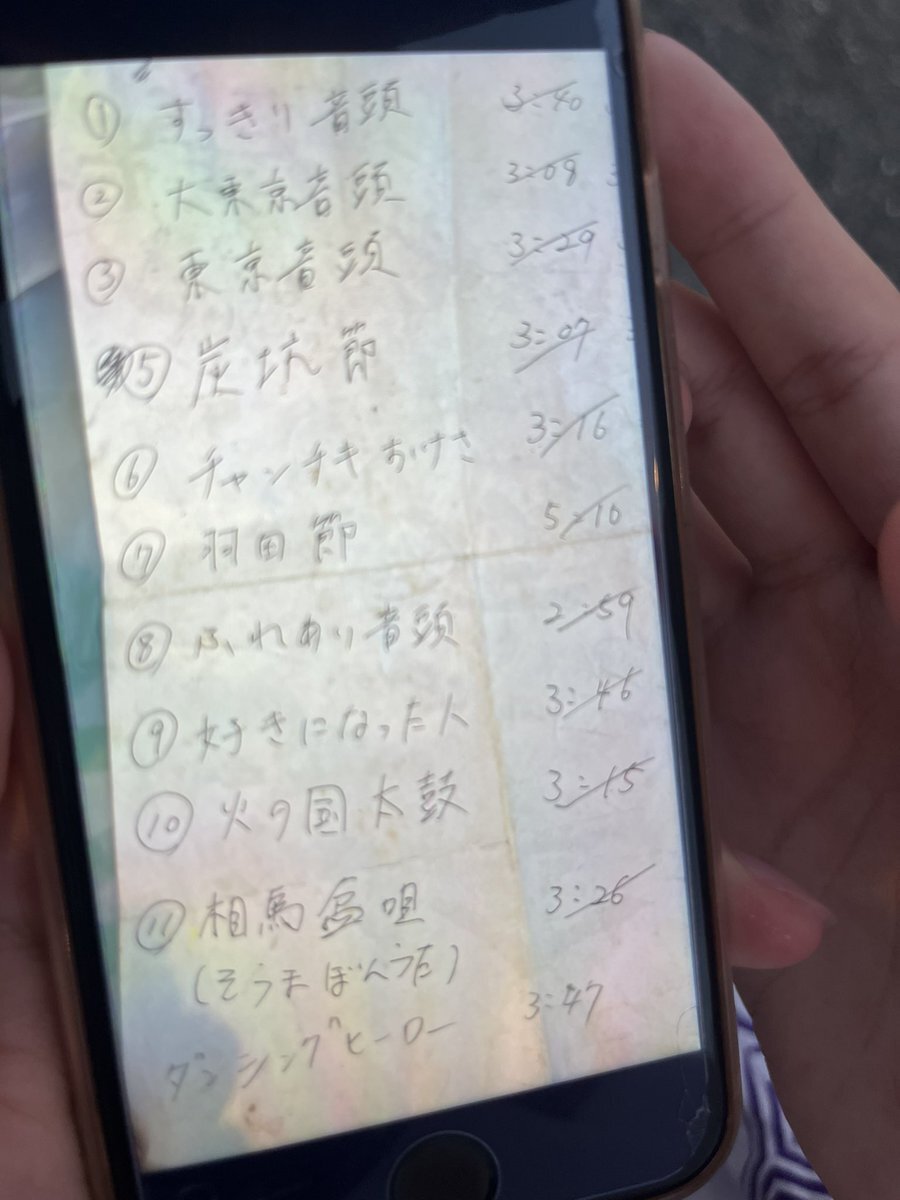 ① すっきり音頭 3:40
② 大東京音頭 3:09
③ 東京音頭 3:29
⑤ 炭坑節 3:07
⑥ チャンチキおけさ 3:16
⑦ 羽田節 5:10
⑧ ふれあい音頭 2:59
⑨ 好きになった人 3:46
⑩ 火の国太鼓 3:15
⑪ 相馬盆唄 3:26
(そうまぼんうた)
ダンシングヒーロー 3:47